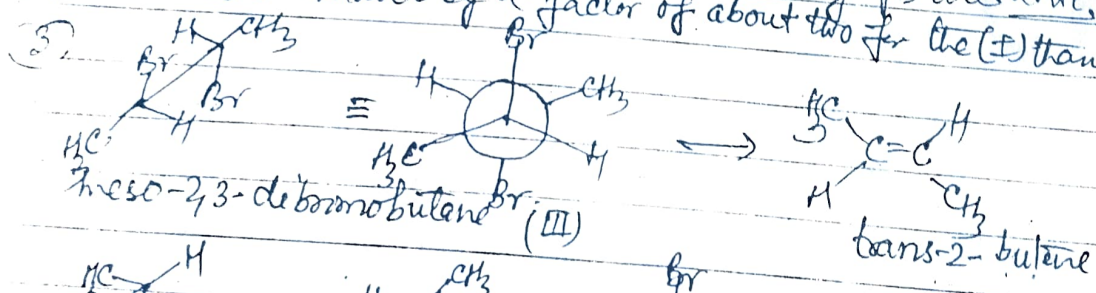 factor of about two for the (±) than
3.
H CH3
Br
Br
H
H3C
≡
Br
H CH3
H3C H
Br
H3C H
C=C
H CH3
meso-2,3-dibromobutane (III)
trans-2-butene
H3C H
CH3
Br